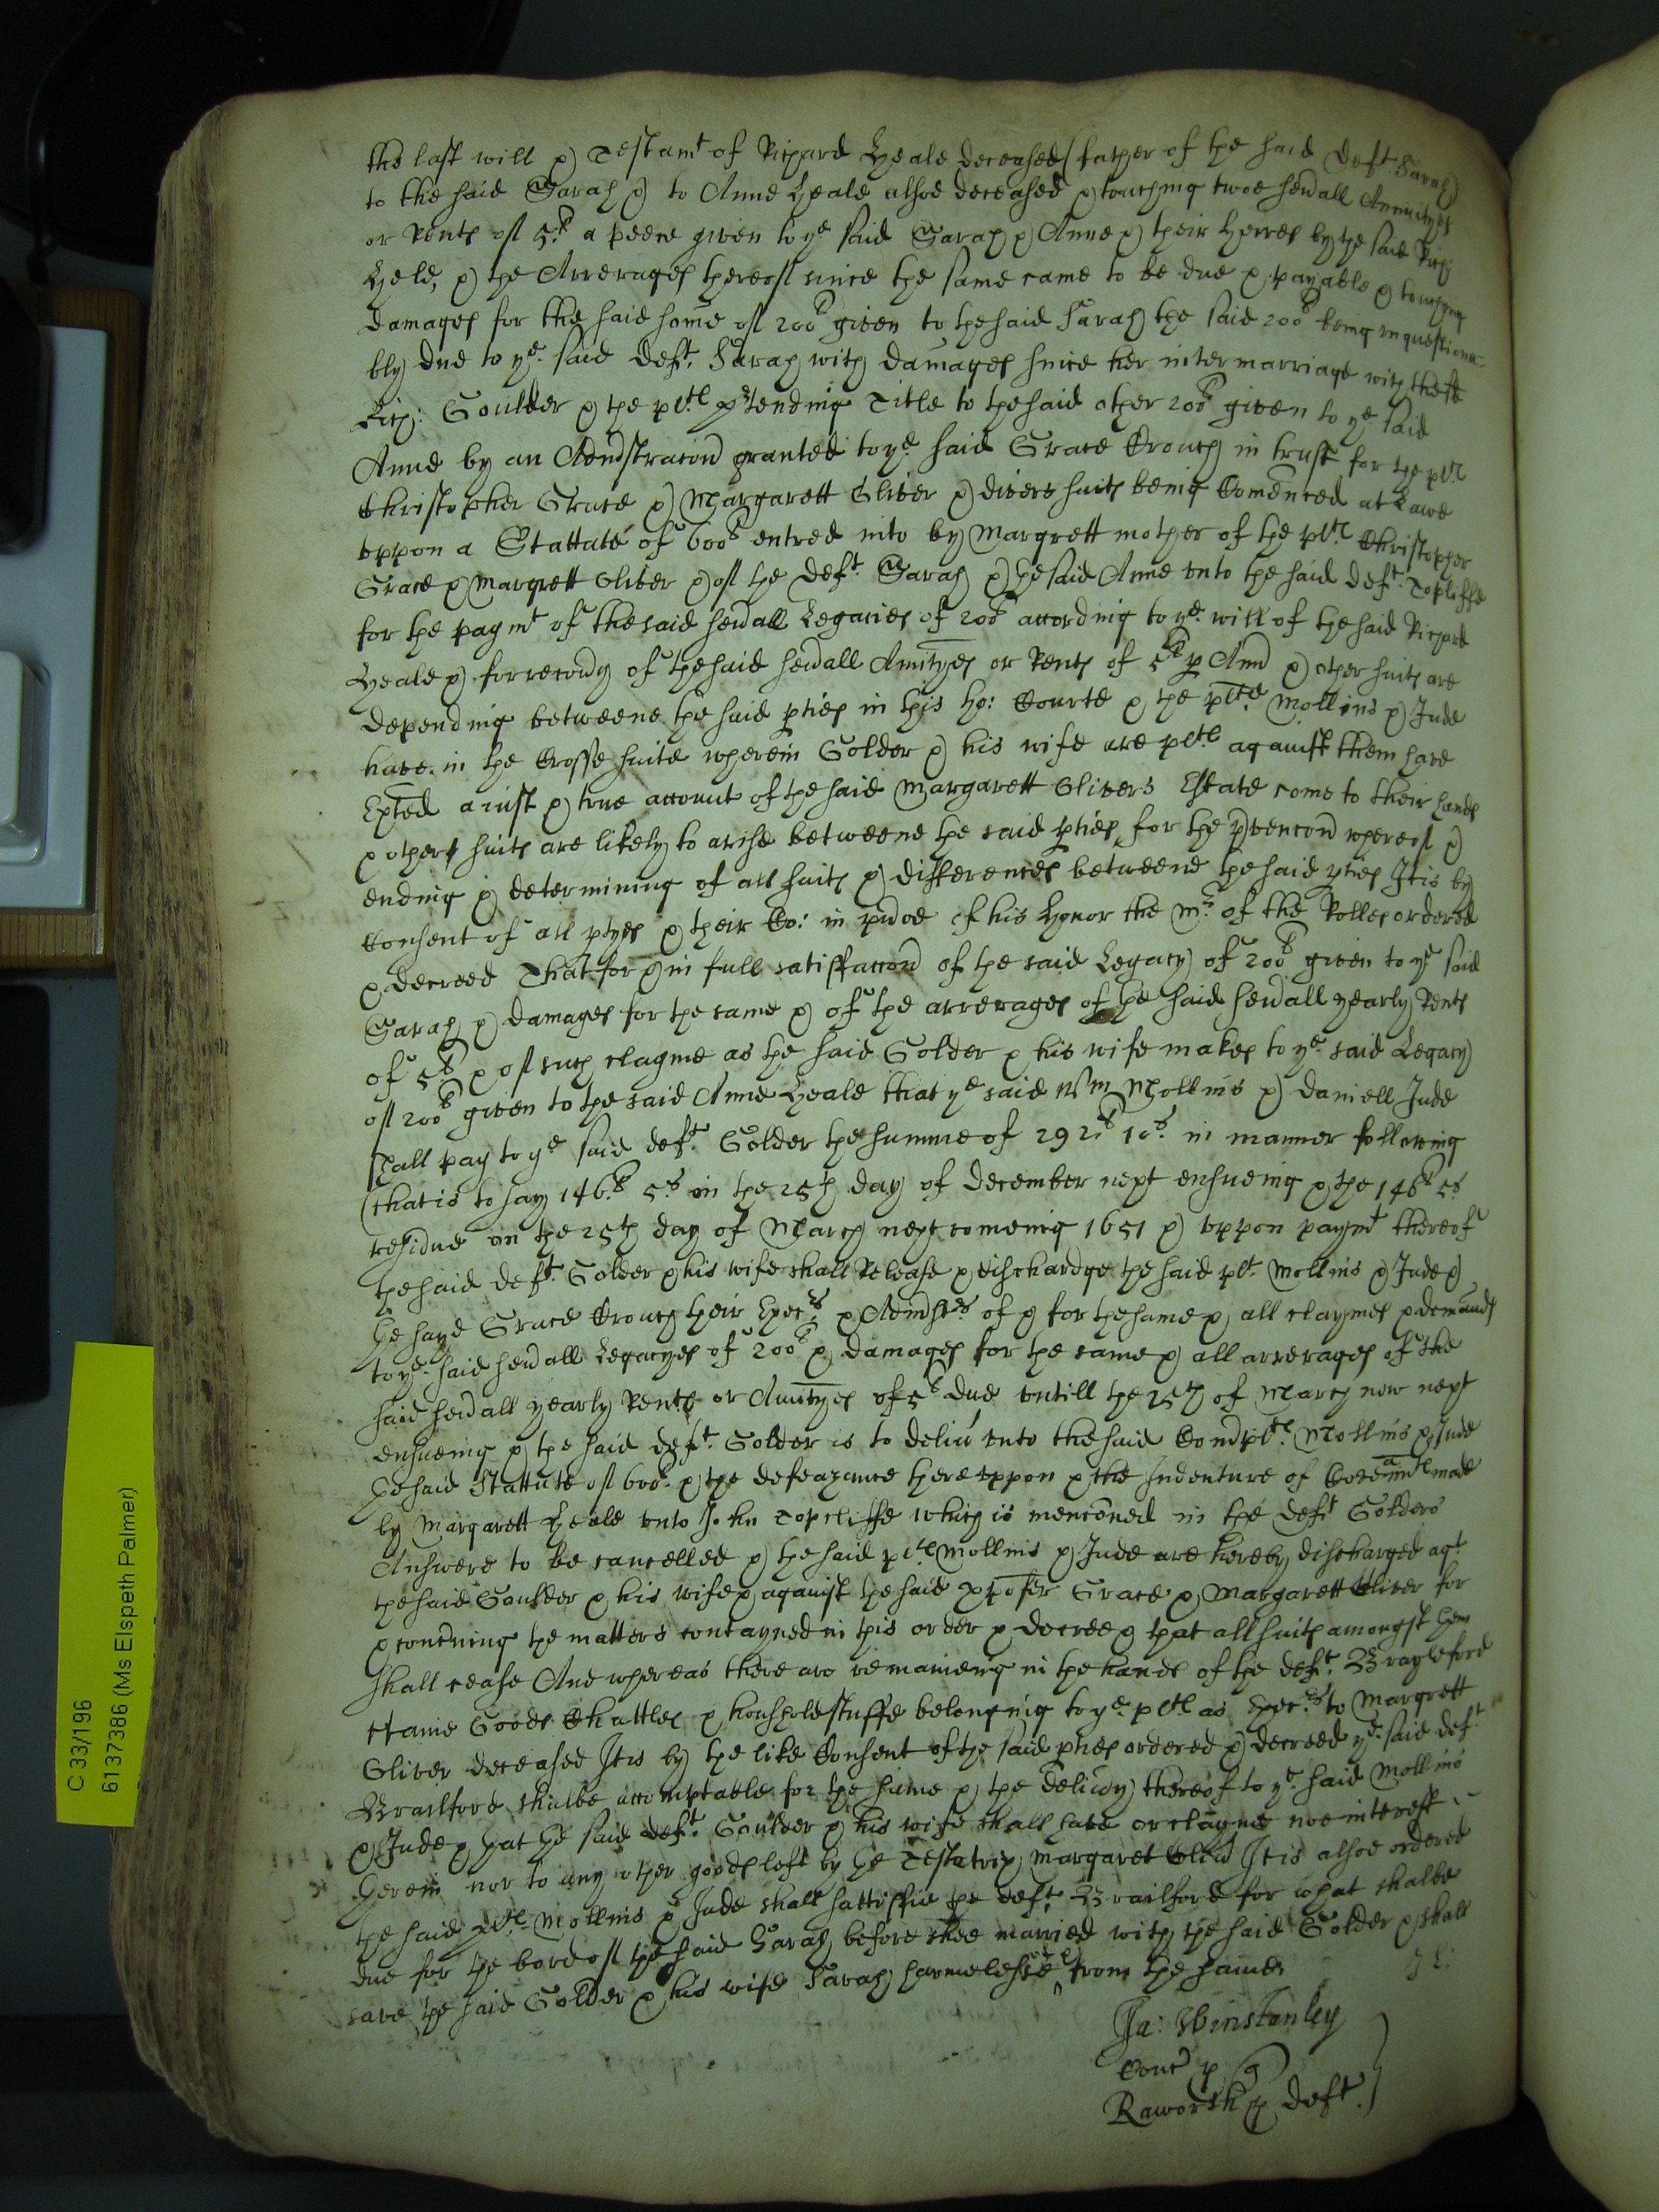 the last will & Testamt of Richard Heale deceased (father of the said Deft Sarah)
to the said Sarah & to Anne Heale alsoe deceased & touching twoe sevall Annuityes
or Rents of 5li a peece given to ye said Sarah & Anne & their heires by the said Rich:
Hele, & the Arrerages thereof since the same came to be due & payable & touching
Damages for the said some of 200li given to the said Sarah the said 200li being inquestiona-
bly due to ye said Deft. Sarah with damages since her intermarriage with the deft
Rich: Goulder & the plts ptending Title to the said other 200li given to ye said
Anne by an Admstracon granted to ye said Grace Crouch in trust for the plts
Christopher Grace & Margarett Oliver & divers suits being Comenced at Lawe
uppon a Stattute of 600li entred into by Margrett mother of the plts Christopher
Grace & Margrett Oliver & of the Deft Sarah & the said Anne unto the said Deft Topliffe
for the paymt of the said sevall Legacies of 200li according to ye will of the said Richard
Heale & for recovy of the said sevall Anuityes or Rents of 5li p Ann & other suits are
depending betweene the said pties in this ho: Courte & the plts Mollins & Jude
have in the Crosse suite wherein Golder & his wife are plts against them have
Expted a iust & true account of the said Margarett Olivers Estate come to their hands
& others suits are likely to arise betweene the said pties for the pvencon whereof &
ending & determining of all suits & differences betweene the said pties It is by
Consent of all ptyes & their Co: in pnce of his Honor the Mr of the Rolles ordered
& decreed That for & in full satisfaccon of the said Legacy of 200li given to ye said
Sarah & damages for the same & of the arrerages of the said sevall yearly Rents
of 5li & of such clayme as the said Golder & his wife makes to ye said Legacy
of 200li given to the said Anne Heale that ye said Wm Mollins & Daniell Jude
shall pay to ye said deft Golder the summe of 292li 10s in manner following
(that is to say 146li 5s on the 25th day of December next ensueing & the 146li 5s
residue on the 25th day of March next comeing 1651 & uppon paymt thereof
the said deft Golder & his wife shall Release & dischardge the said plts Mollins & Jude &
the sayd Grace Crouch their Execrs & Admstrs of & for the same & all claymes & demands
to ye said sevall Legacyes of 200li & damages for the same & all arrerages of the
said sevall yearly Rents or Anuityes of 5li due untill the 25th of March now next
ensueing & the said deft Golder is to deliv unto the said plts Mollins & Jude
the said Stattute of 600li & the defeazance thereuppon & the Indenture of Covenants made
by Margarett Heale unto John Topcliffe which is menconed in the deft Golders
Answere to be cancelled & the said plts Mollins & Jude are hereby discharged agt
the said Goulder & his wife & against the said Xpofer Grace & Margarett Oliver for
& concning the matters contayned in this order & decree & that all suits amongst them
shall cease And whereas there are remaineing in the hands of the deft. Brayleford
ctaine Goods Chattles & housholdstuffe belonging to ye plts as Execrs to Margrett
Oliver deceased It is by the like Consent of the said pties ordered & decreed ye said deft
Brailford shalbe accomptable for the same & the delivy thereof to ye said Mollins
& Jude & that the said deft. Goulder & his wife shall have or clayme noe interest
therein nor to any other goods left by the Testatrix Margaret Oliv It is alsoe ordered
the said plts Mollins & Jude shall sattisfie the deft. Brailford for what shalbe
due for the bord of the said Sarah before shee married with the said Golder & shall
save the said Golder & his wife Sarah harmelesse from the same
Ja: Winstanley
Raworth p deft.
C 33/196
6137386 (Ms Elspeth Palmer)